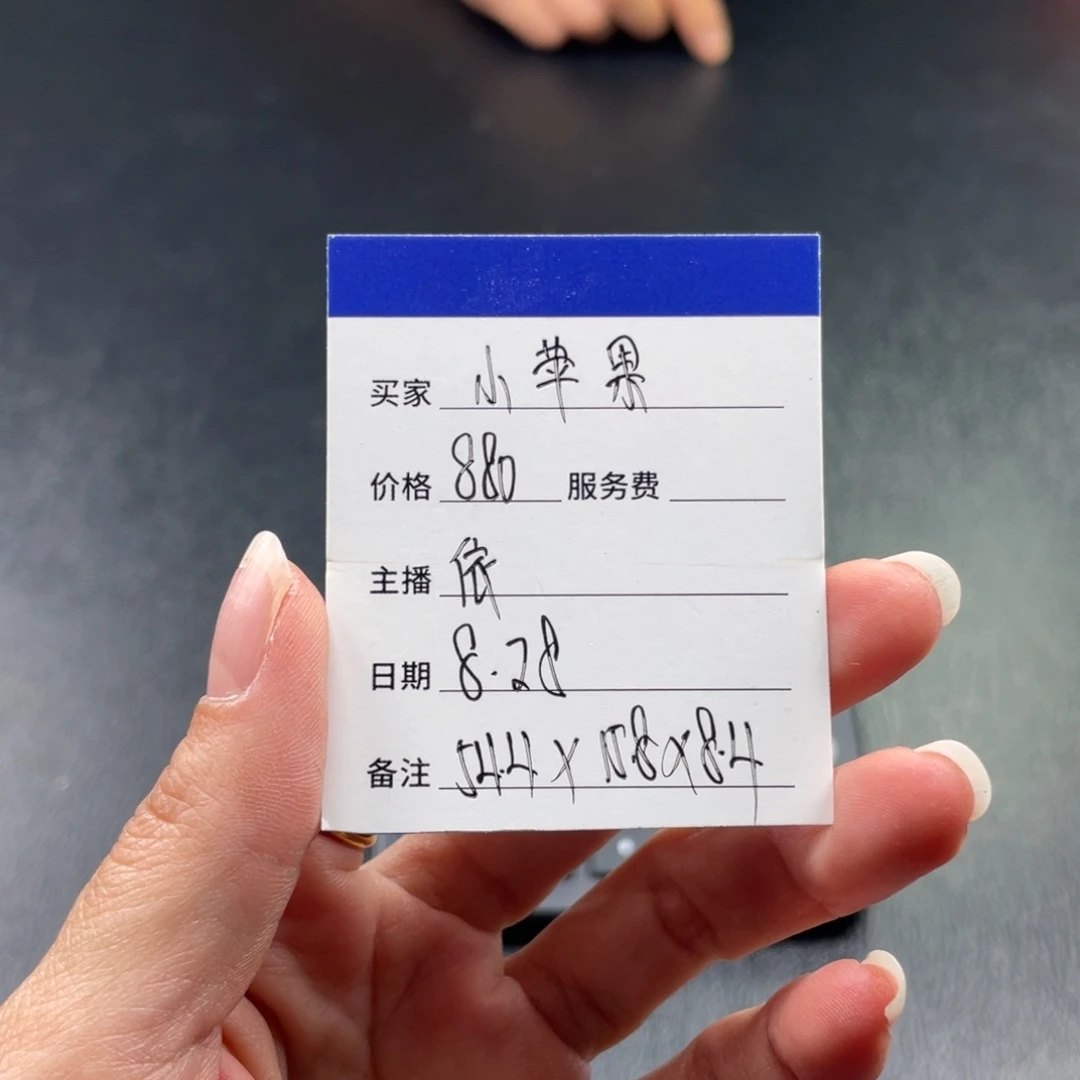 买家 小苹果
价格 880 服务费
主播 依
日期 8.28
备注 54.4x15.8x8.4